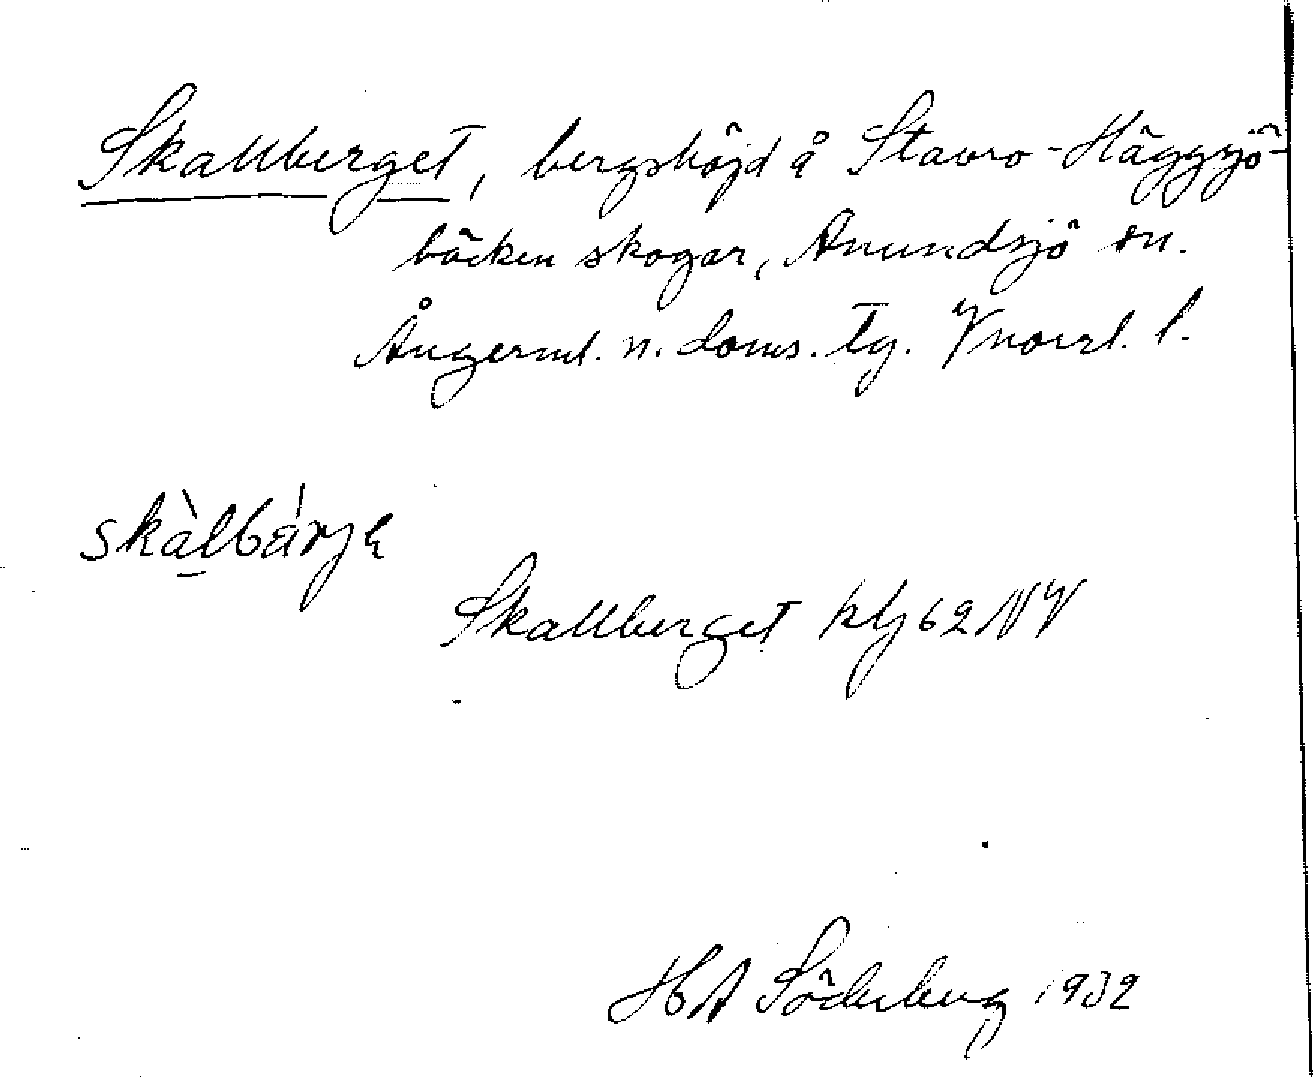 Skallberget, bergshöjd å Stavro-Häggsjö-
bäcken skogar, Anundsjö sn.
Ångerml. n. doms. tg. Vnorrl. l.
skàlbárjɐ
Skallberget kbj 62 NV
HA Söderberg 1932